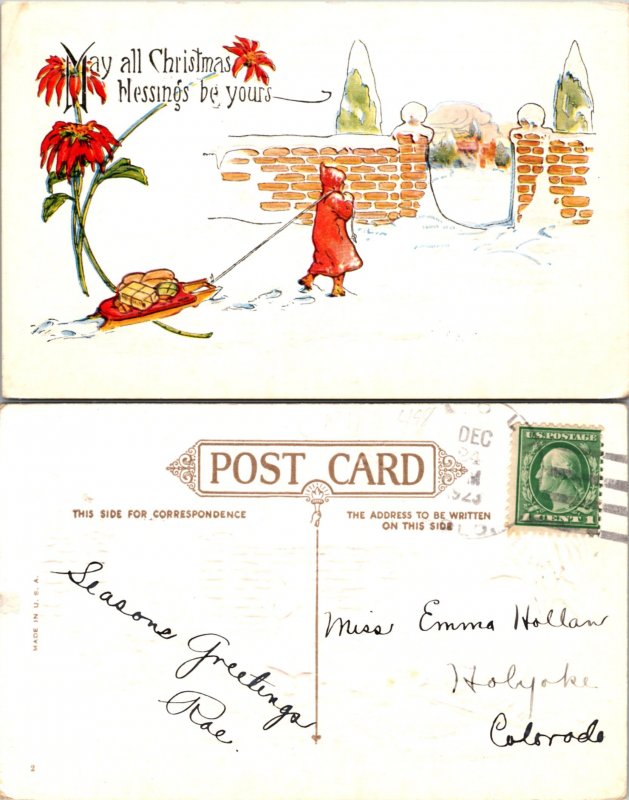 May all Christmas
blessings be yours
DEC
POST CARD
U.S. POSTAGE
1 CENT 1
THIS SIDE FOR CORRESPONDENCE
THE ADDRESS TO BE WRITTEN
ON THIS SIDE
MADE IN U.S.A.
Seasons
Greetings
Rae.
Miss Emma Hollan
Holyoke
Colorado
2